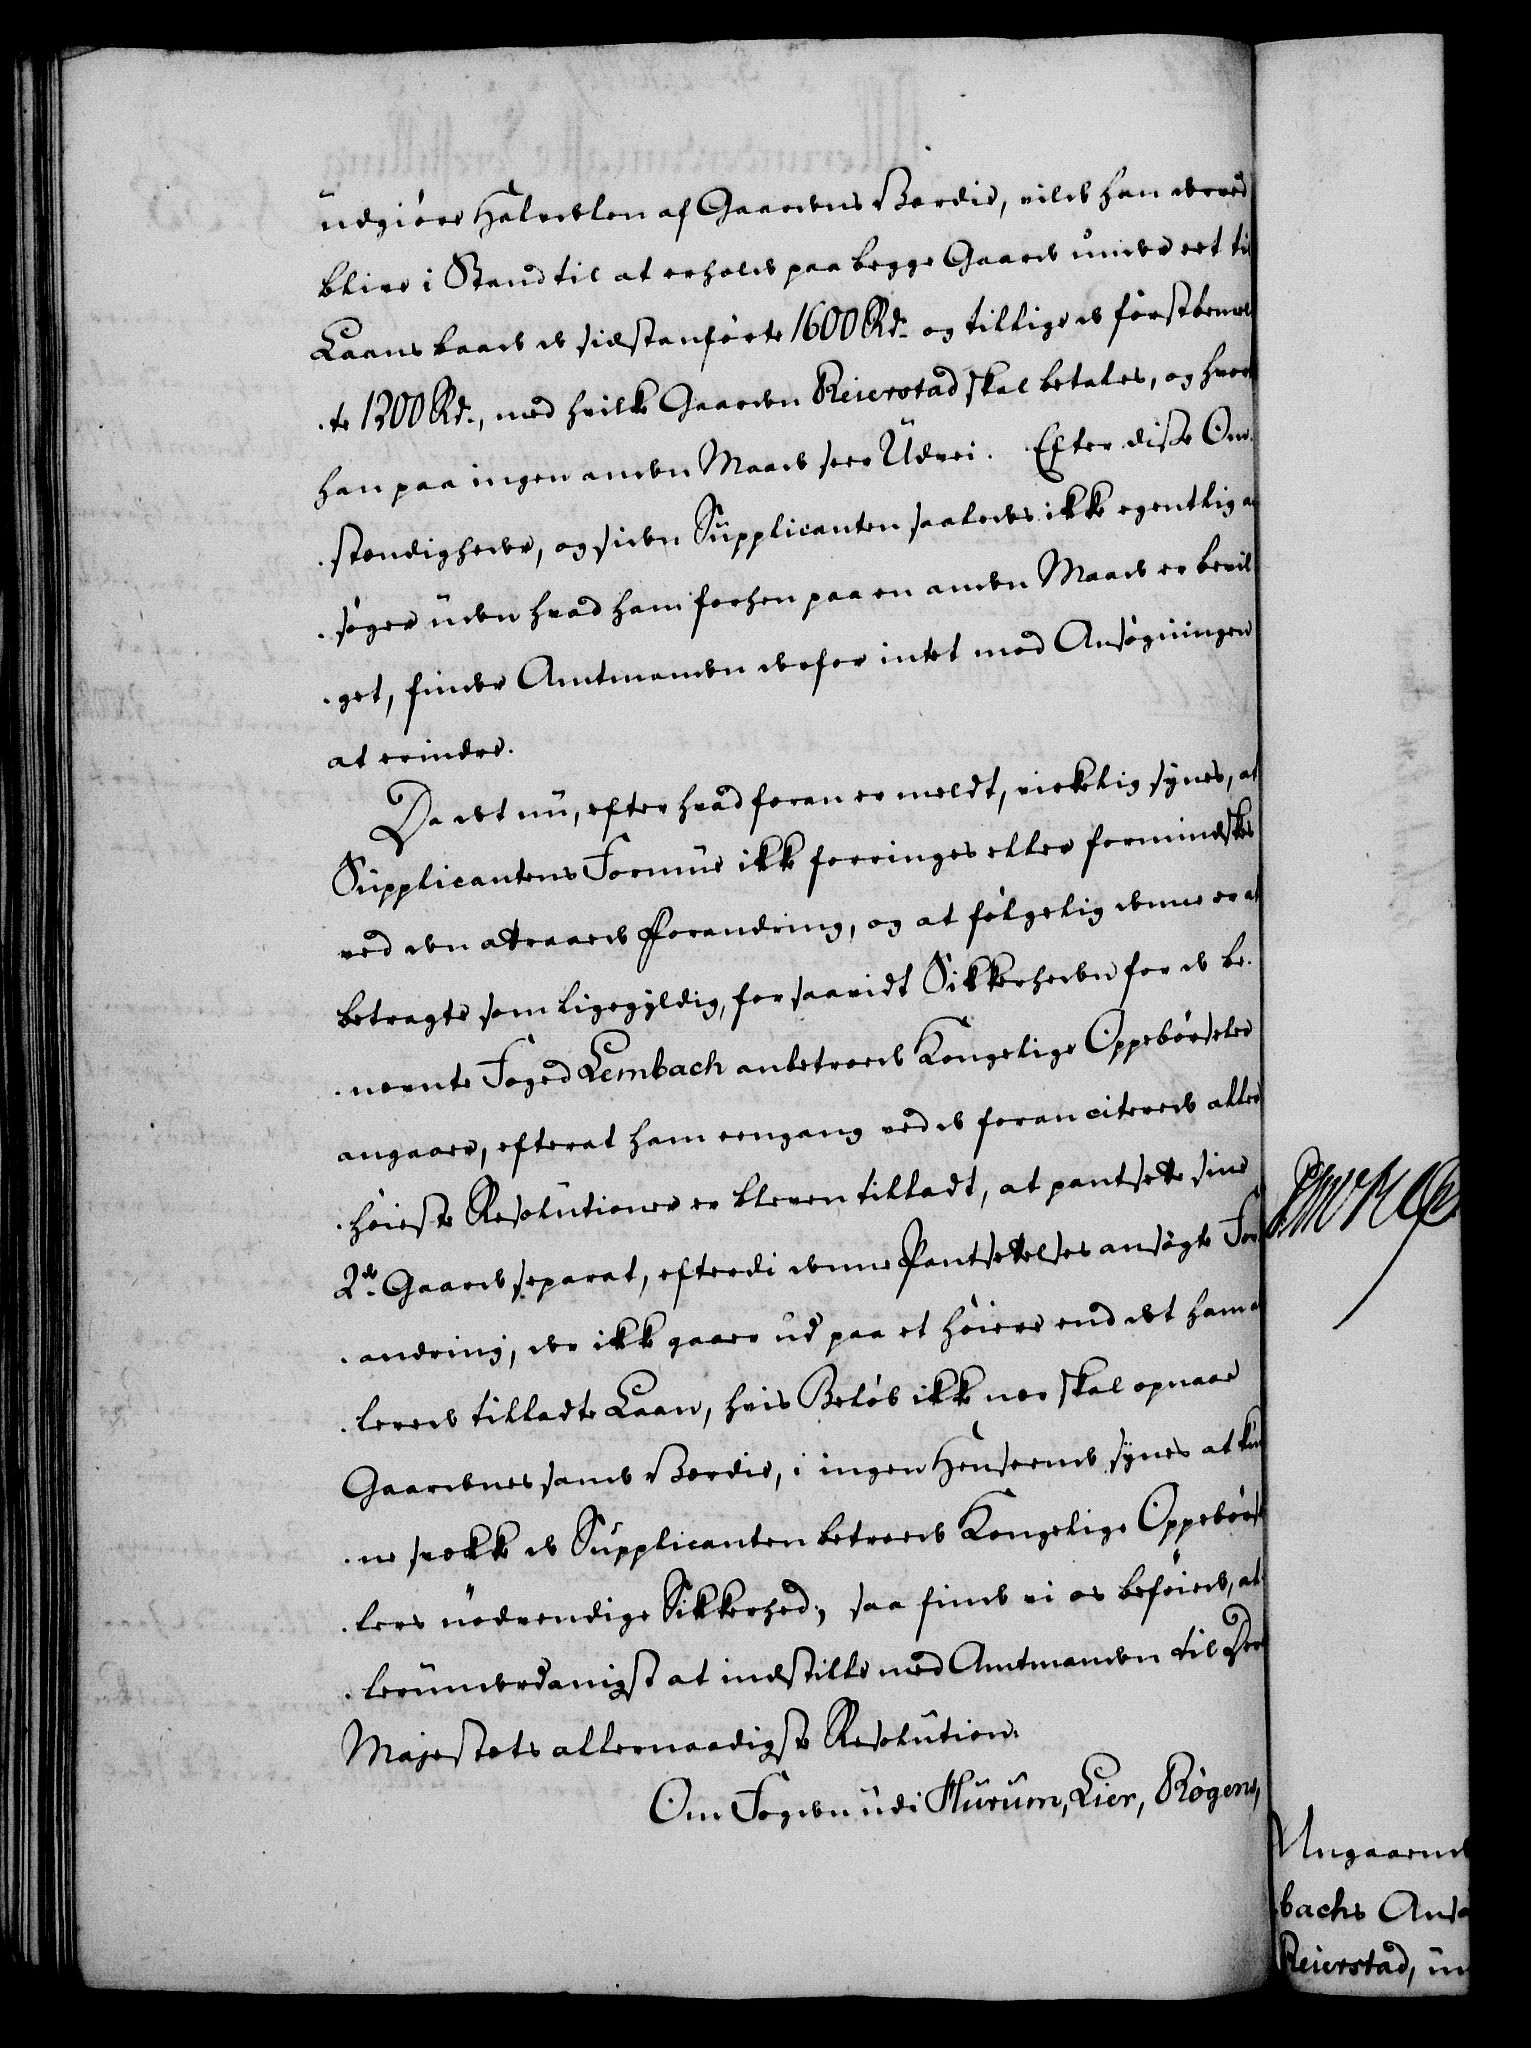 udgiøre Halvdelen af Gaardens Værdie, vilde han derved
blive i Stand til at erholde paa begge Gaarde under eet til
Laans baade de sidstanførte 1600 Rd. og tillige de førstbemel
te 1300 Rd., med hvilke Gaarden Reierstad skal betales, og hvor
han paa ingen anden Maade seer Udvei. Efter disse Om-
stændigheder, og siden Supplicanten saaledes ikke egentlig an
søger uden hvad ham forhen paa en anden Maade er bevil
get, finder Amtmanden derfor intet mod Ansøgningen
at erindre.
Da det nu, efter hvad foran er meldt, virkelig synes, at
Supplicantens Formue ikke forringes eller formindskes
ved den attraaede Forandring, og at følgelig denne er at
betragte som ligegyldig, forsaavidt Sikkerheden for de be-
nævnte Foged Lembach anbetroede Kongelige Oppebørseler
angaaer, efterat ham eengang ved de foran citerede aller
høieste Resolutioner er bleven tilladt, at pantsette sine
2de Gaarde separat, efterdi denne Pantsettelses ansøgte For
andring, der ikke gaaer ud paa et høiere end det ham al
lerede tilladte Laan, hvis Beløb ikke nær skal opnaae
Gaardenes sande Værdie, i ingen Henseende synes at kun
ne svække de Supplicanten betroede Kongelige Oppebørse
lers nødvendige Sikkerhed; saa finde vi os beføiede, al
lerunderdanigst at indstille med Amtmanden til Deres
Majestæts allernaadigste Resolution:
Om Fogden udi Hurum, Lier, Røgens,
Angaaende
bachs Ansø
Reierstad, un